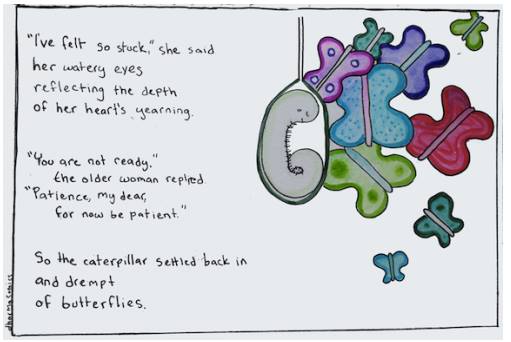 "I've felt so stuck," she said
her watery eyes
reflecting the depth
of her heart's yearning.
"You are not ready."
the older woman replied.
"Patience, my dear,
for now be patient."
So the caterpillar settled back in
and drempt
of butterflies.
dharmacomics